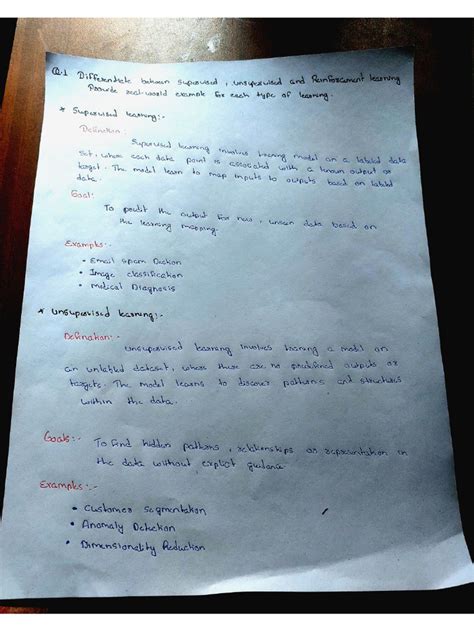 Q.1 Differentiate between supervised, unsupervised and Reinforcement learning
Provide real-world example for each type of learning.
* Supervised learning:-
Definition:
Supervised learning involves training model on a labeled data
set, where each data point is associated with a known output or
target. The model learn to map inputs to outputs based on labeled
data.
Goal:
To predit the output for new, unseen data based on
the learning mapping.
Examples:-
• Email spam Dection
• Image classification
• medical Diagnosis
* Unsupervised learning:-
Defination:-
Unsupervised learning involves training a model on
an unlabled dataset, where there are no predifined outputs or
targets. The model learns to discover patterns and structures
within the data.
Goals:-
To find hidden patterns, relationships or representation in
the data without explicit guidance.
Examples:-
• Customer Segmentation
• Anomaly Detection
• Dimensionality Reduction